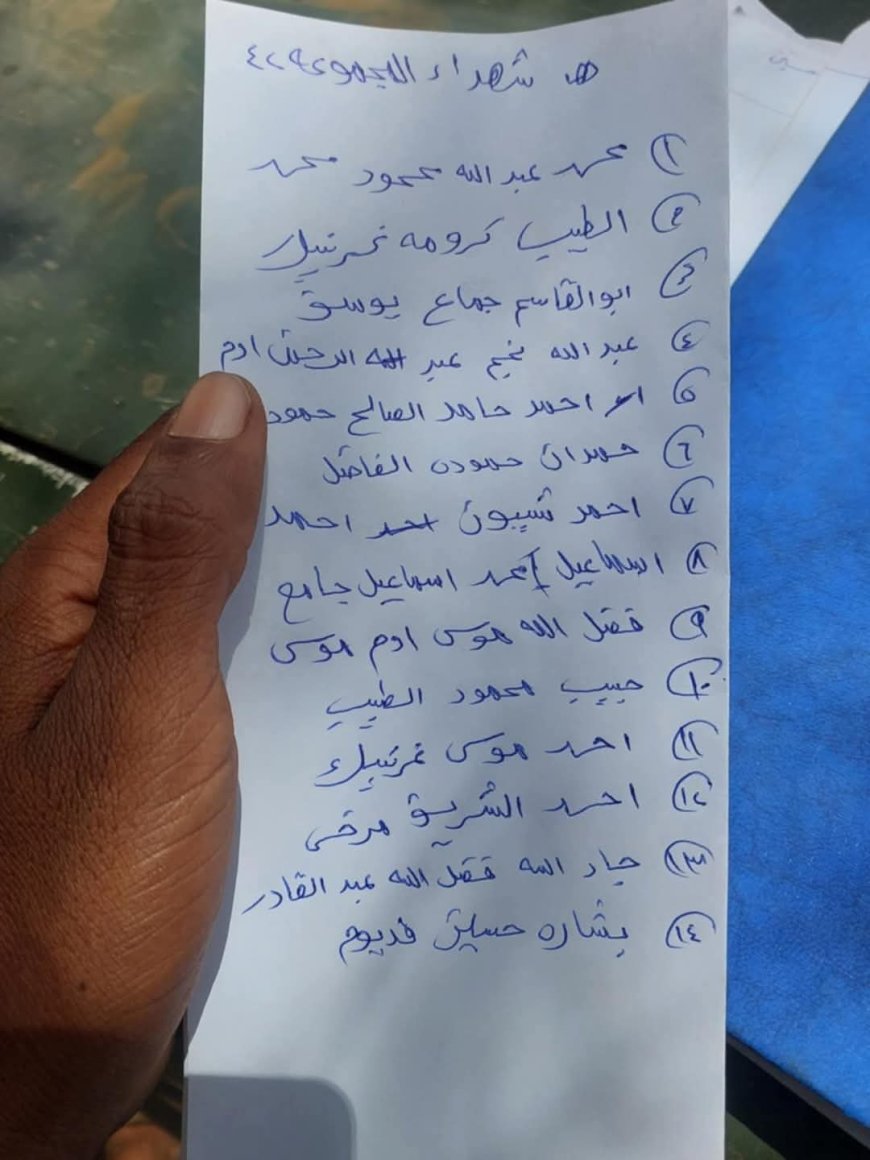 شهداء المجموعة ٤٢
١ محمد عبد الله محمود محمد
٢ الطيب كرومه نمر تيل
٣ ابوالقاسم جماع يوسف
٤ عبد الله نجم عبد الرحمن ادم
٥ احمد حامد الصالح حمود
٦ حمدان حموده الفاضل
٧ احمد شيبون احمد
٨ اسماعيل محمد اسماعيل جامع
٩ فضل الله موسى ادم موسى
١٠ حبيب محمود الطيب
١١ احمد موسى
١٢ احمد الشريف مرضى
١٣ جاد الله فضل الله عبد القادر
١٤ بشاره حسين قديوم